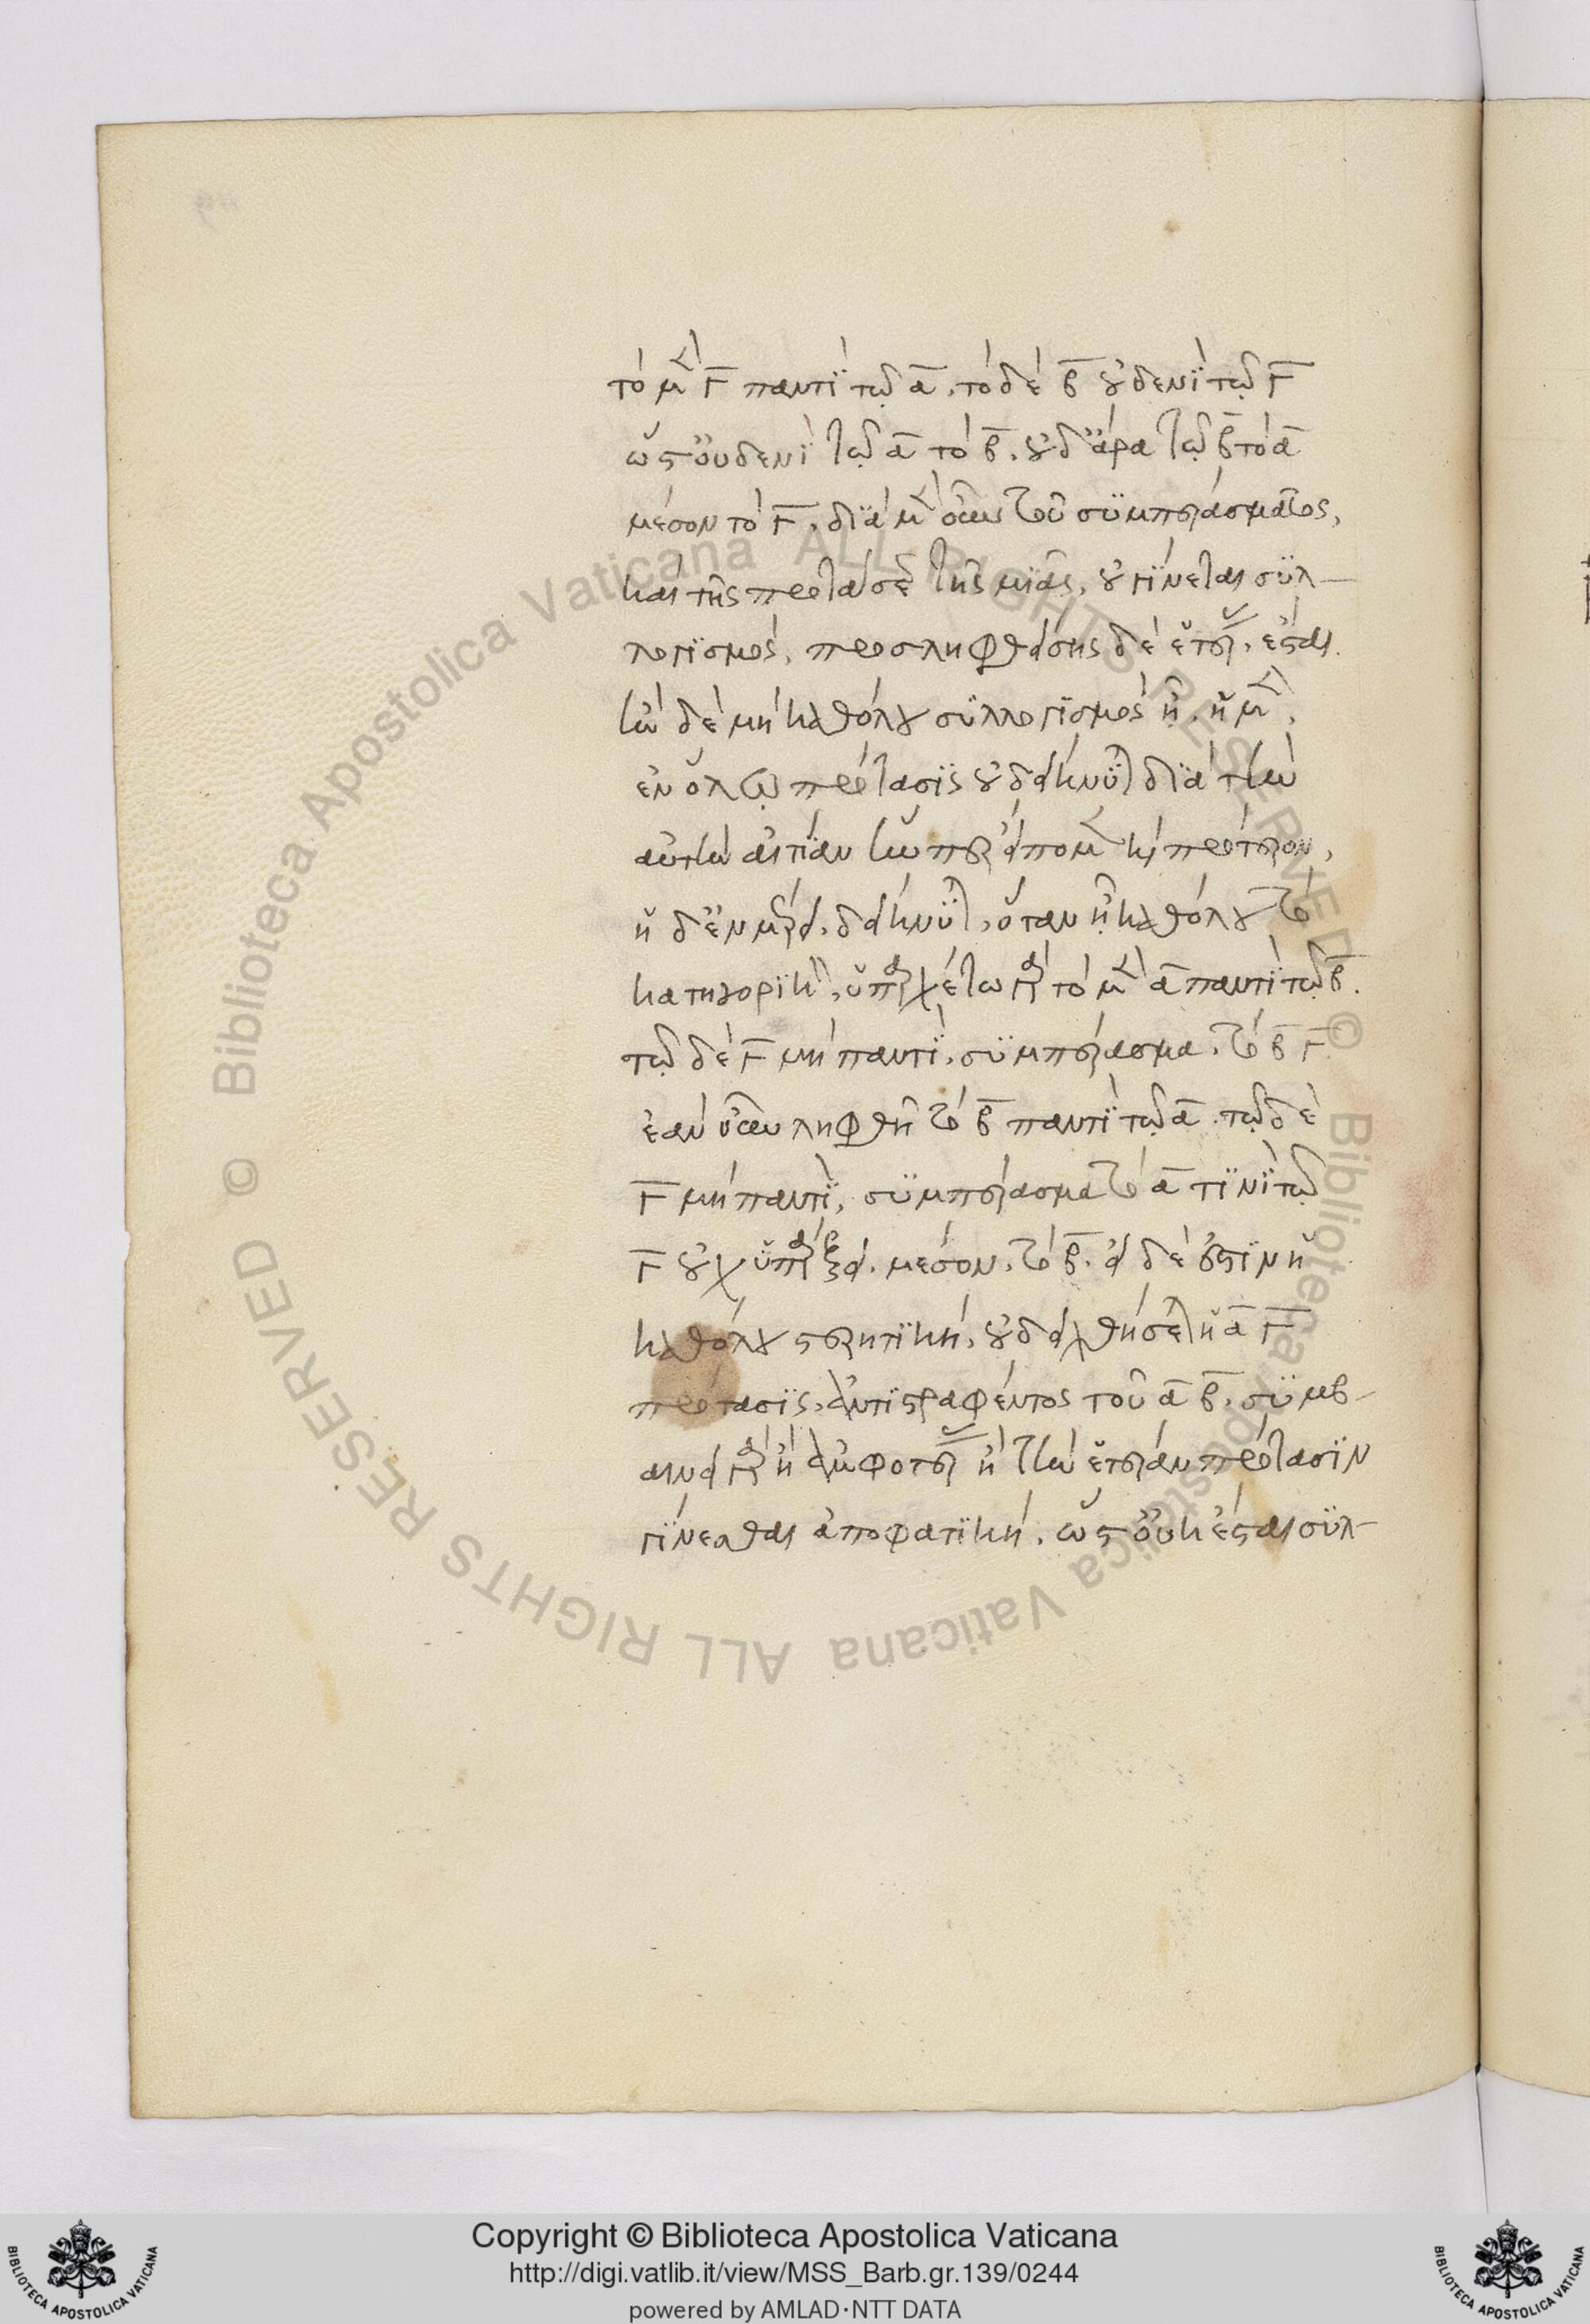 τὸ μὲν Γ παντὶ τῷ α, τὸ δὲ β οὐδενὶ τῷ Γ
ὥστ' οὐδενὶ τῷ α τὸ β. οὐδ' ἄρα τῷ β τὸ α
μέσον τὸ Γ. διὰ μὲν οὖν τοῦ συμπεράσματος,
καὶ τῆς προτάσεως τῆς μιᾶς, οὐ γίνεται συλ-
λογισμός, προσληφθείσης δὲ ἑτέρας, ἔσται.
ἐὰν δὲ μὴ καθόλου συλλογισμὸς ᾖ, ἡ μὲν
ἐν ὅλῳ πρότασις οὐ δείκνυται διὰ τὴν
αὐτὴν αἰτίαν ἥνπερ εἴπομεν καὶ πρότερον,
ἡ δ' ἐν μέρει δείκνυται, ὅταν ᾖ καθόλου τὸ
κατηγορικόν, ὑπαρχέτω γὰρ τὸ μὲν α παντὶ τῷ β.
τῷ δὲ Γ μὴ παντί, συμπέρασμα, τὸ β Γ
ἐὰν οὖν ληφθῇ τὸ β παντὶ τῷ α. τῷ δὲ
Γ μὴ παντί, συμπέρασμα τὸ α τινὶ τῷ
Γ οὐχ ὑπάρξει. μέσον, τὸ β. εἰ δὲ ἐστιν ἡ
καθόλου στερητική, οὐ δειχθήσεται ἡ α Γ
πρότασις, ἀντιστραφέντος τοῦ α β. συμβ-
αίνει γὰρ ἢ ἀμφοτέρας ἢ τὴν ἑτέραν πρότασιν
γίνεσθαι ἀποφατικήν. ὥστ' οὐκ ἔσται συλ-
Copyright © Biblioteca Apostolica Vaticana
http://digi.vatlib.it/view/MSS_Barb.gr.139/0244
powered by AMLAD·NTT DATA